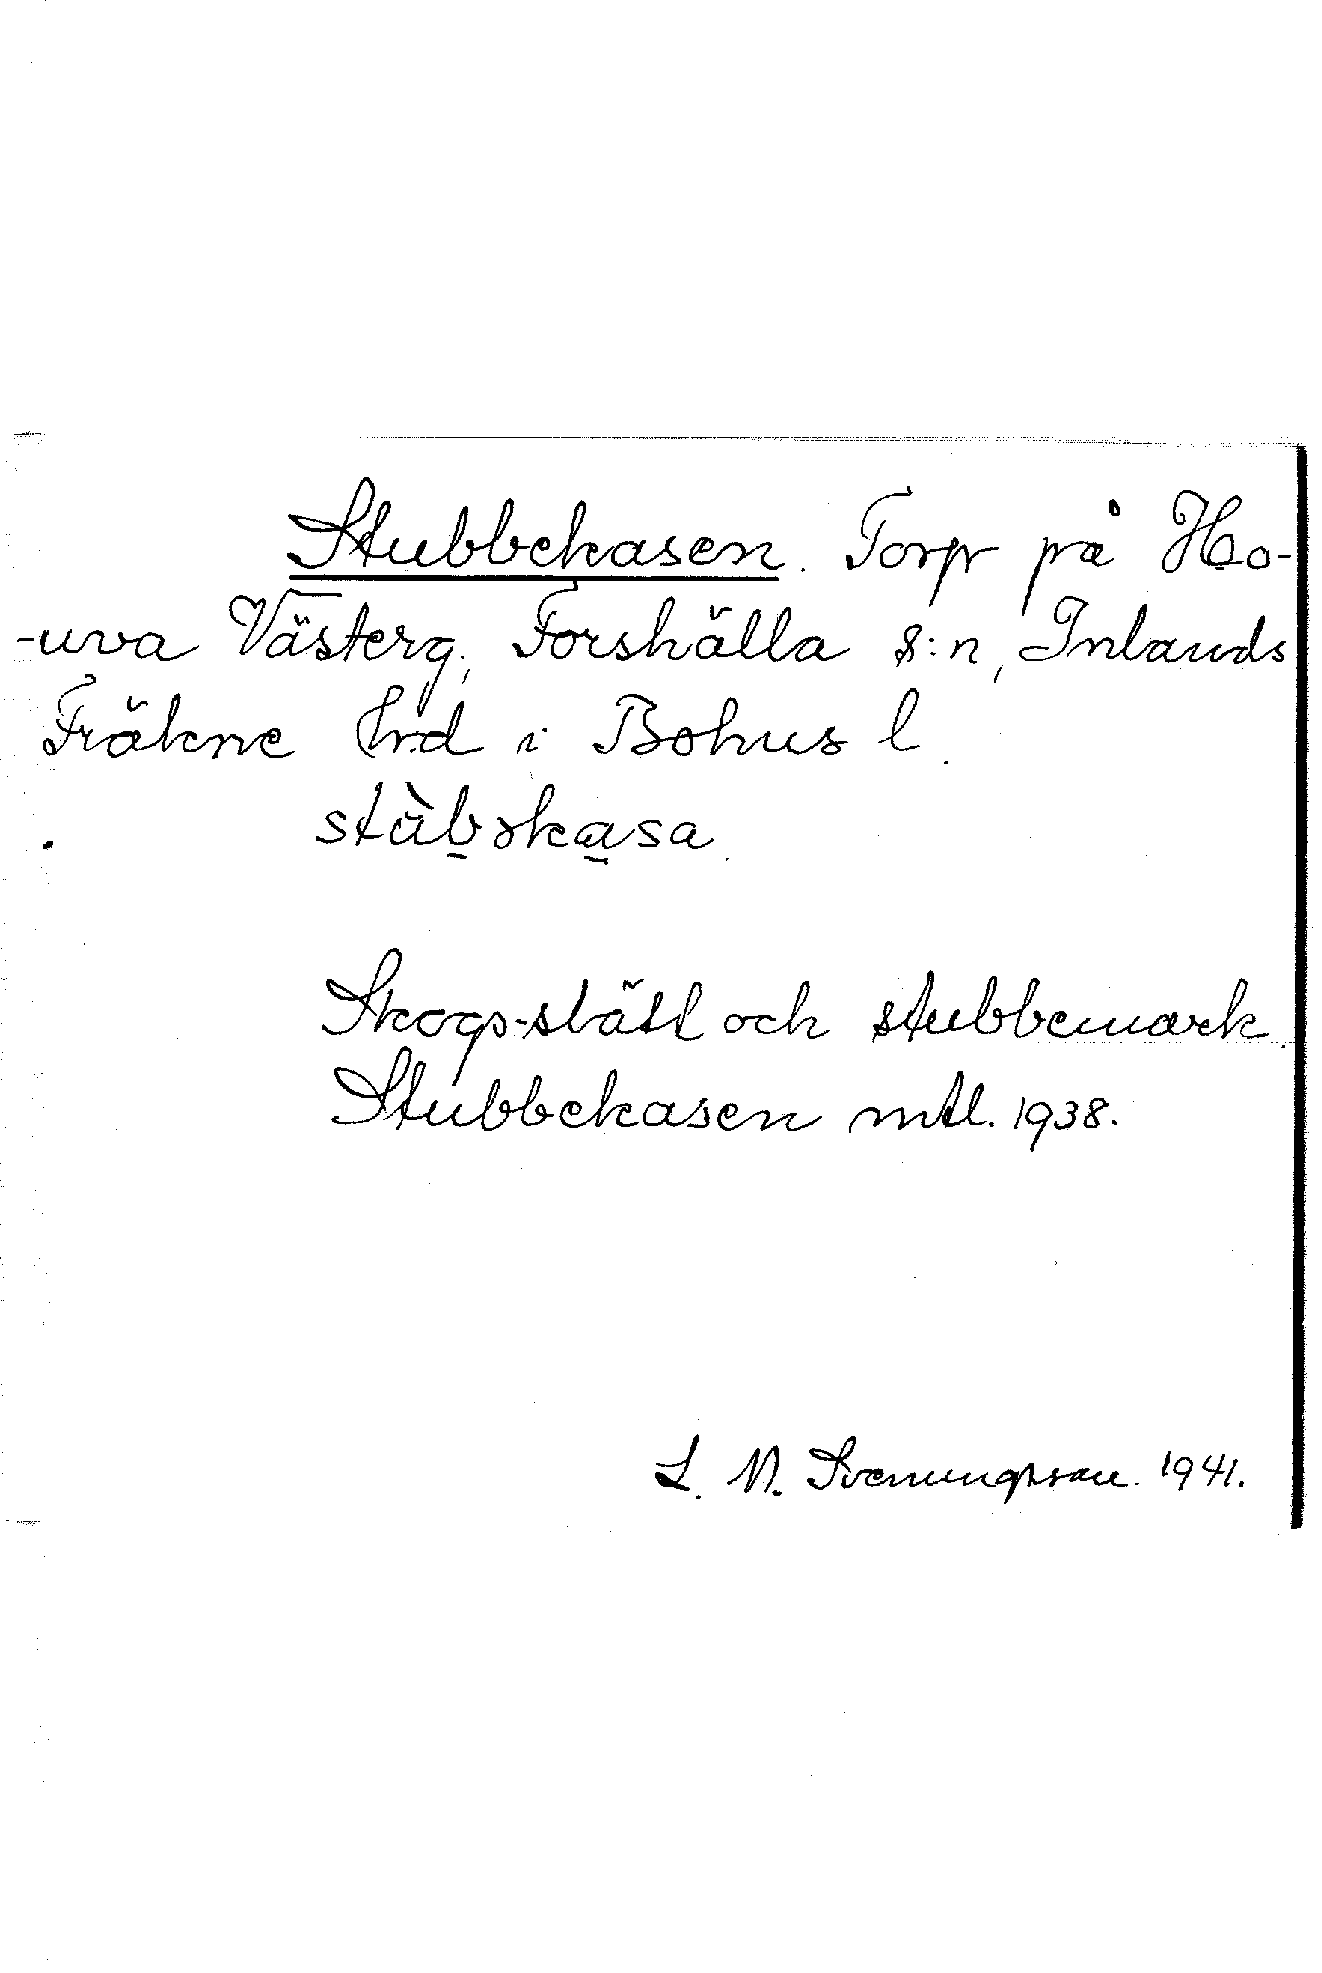 Stubbekasen. Torp på Ho-
-uva Västerg., Forshälla s:n, Inlands
Fräkne hrd i Bohus l.
stubbemark
Skogs-slätt och stubbemark.
Stubbekasen mtl. 1938.
L. N. Svenungsson. 1941.